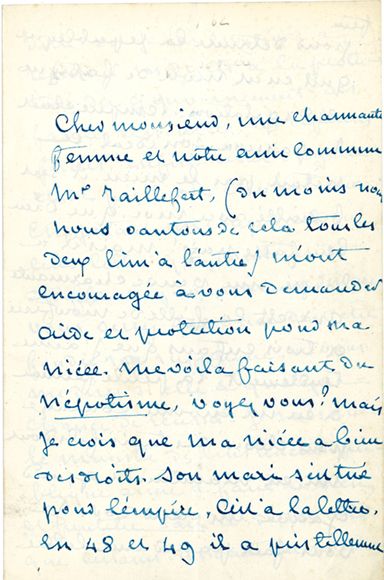 Cher monsieur, une charmante
femme et notre ami commun
Mr Taillefert, (du moins nous
nous vantons de cela tous les
deux l'un à l'autre) m'ont
encouragée à vous demander
aide et protection pour ma
nièce. me voilà faisant du
népotisme, voyez vous! mais
je crois que ma nièce a bien
des droits. Son mari s'est tué
pour l'empire, c'est à la lettre.
en 48 et 49 il a pris tellement